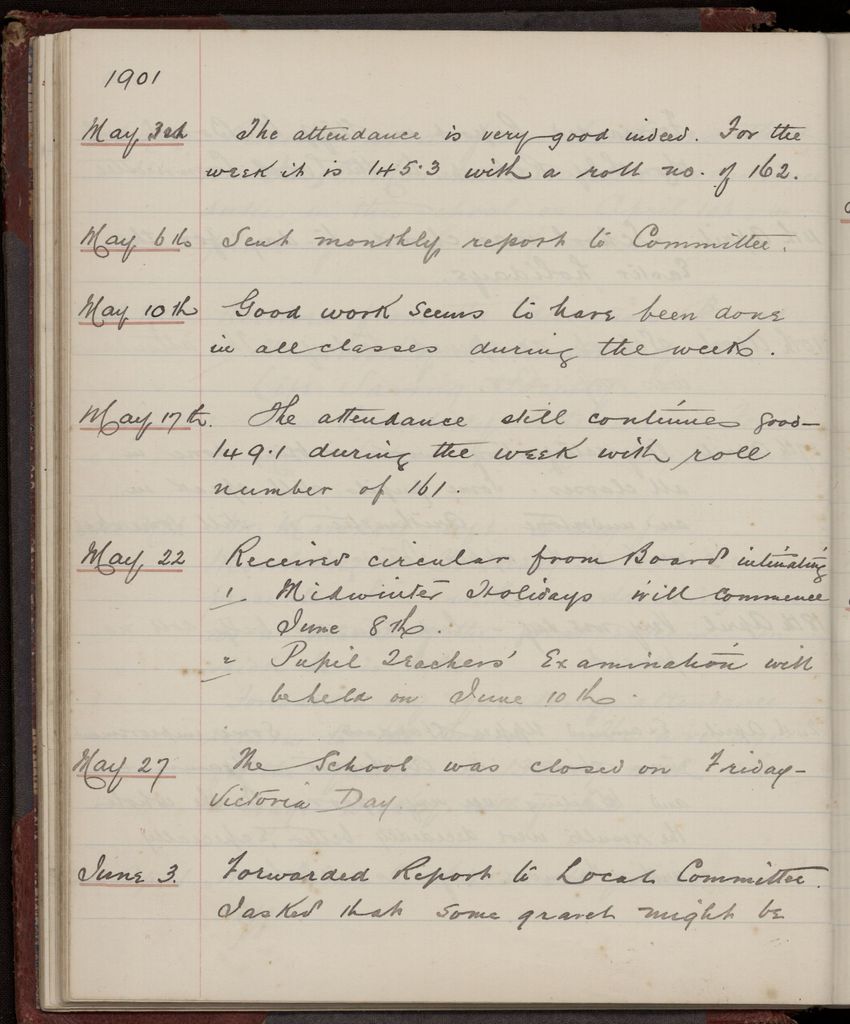 1901
May 3rd The attendance is very good indeed. For the
week it is 145·3 with a roll no. of 162.
May 6th Sent monthly report to Committee.
May 10th Good work seems to have been done
in all classes during the week.
May 17th. The attendance still continues good—
149·1 during the week with roll
number of 161.
May 22 Received circular from Board intimating
1 Midwinter Holidays will commence
June 8th.
2 Pupil Teachers' Examination will
be held on June 10th.
May 27 The School was closed on Friday—
Victoria Day.
June 3. Forwarded Report to Local Committee.
I asked that some gravel might be